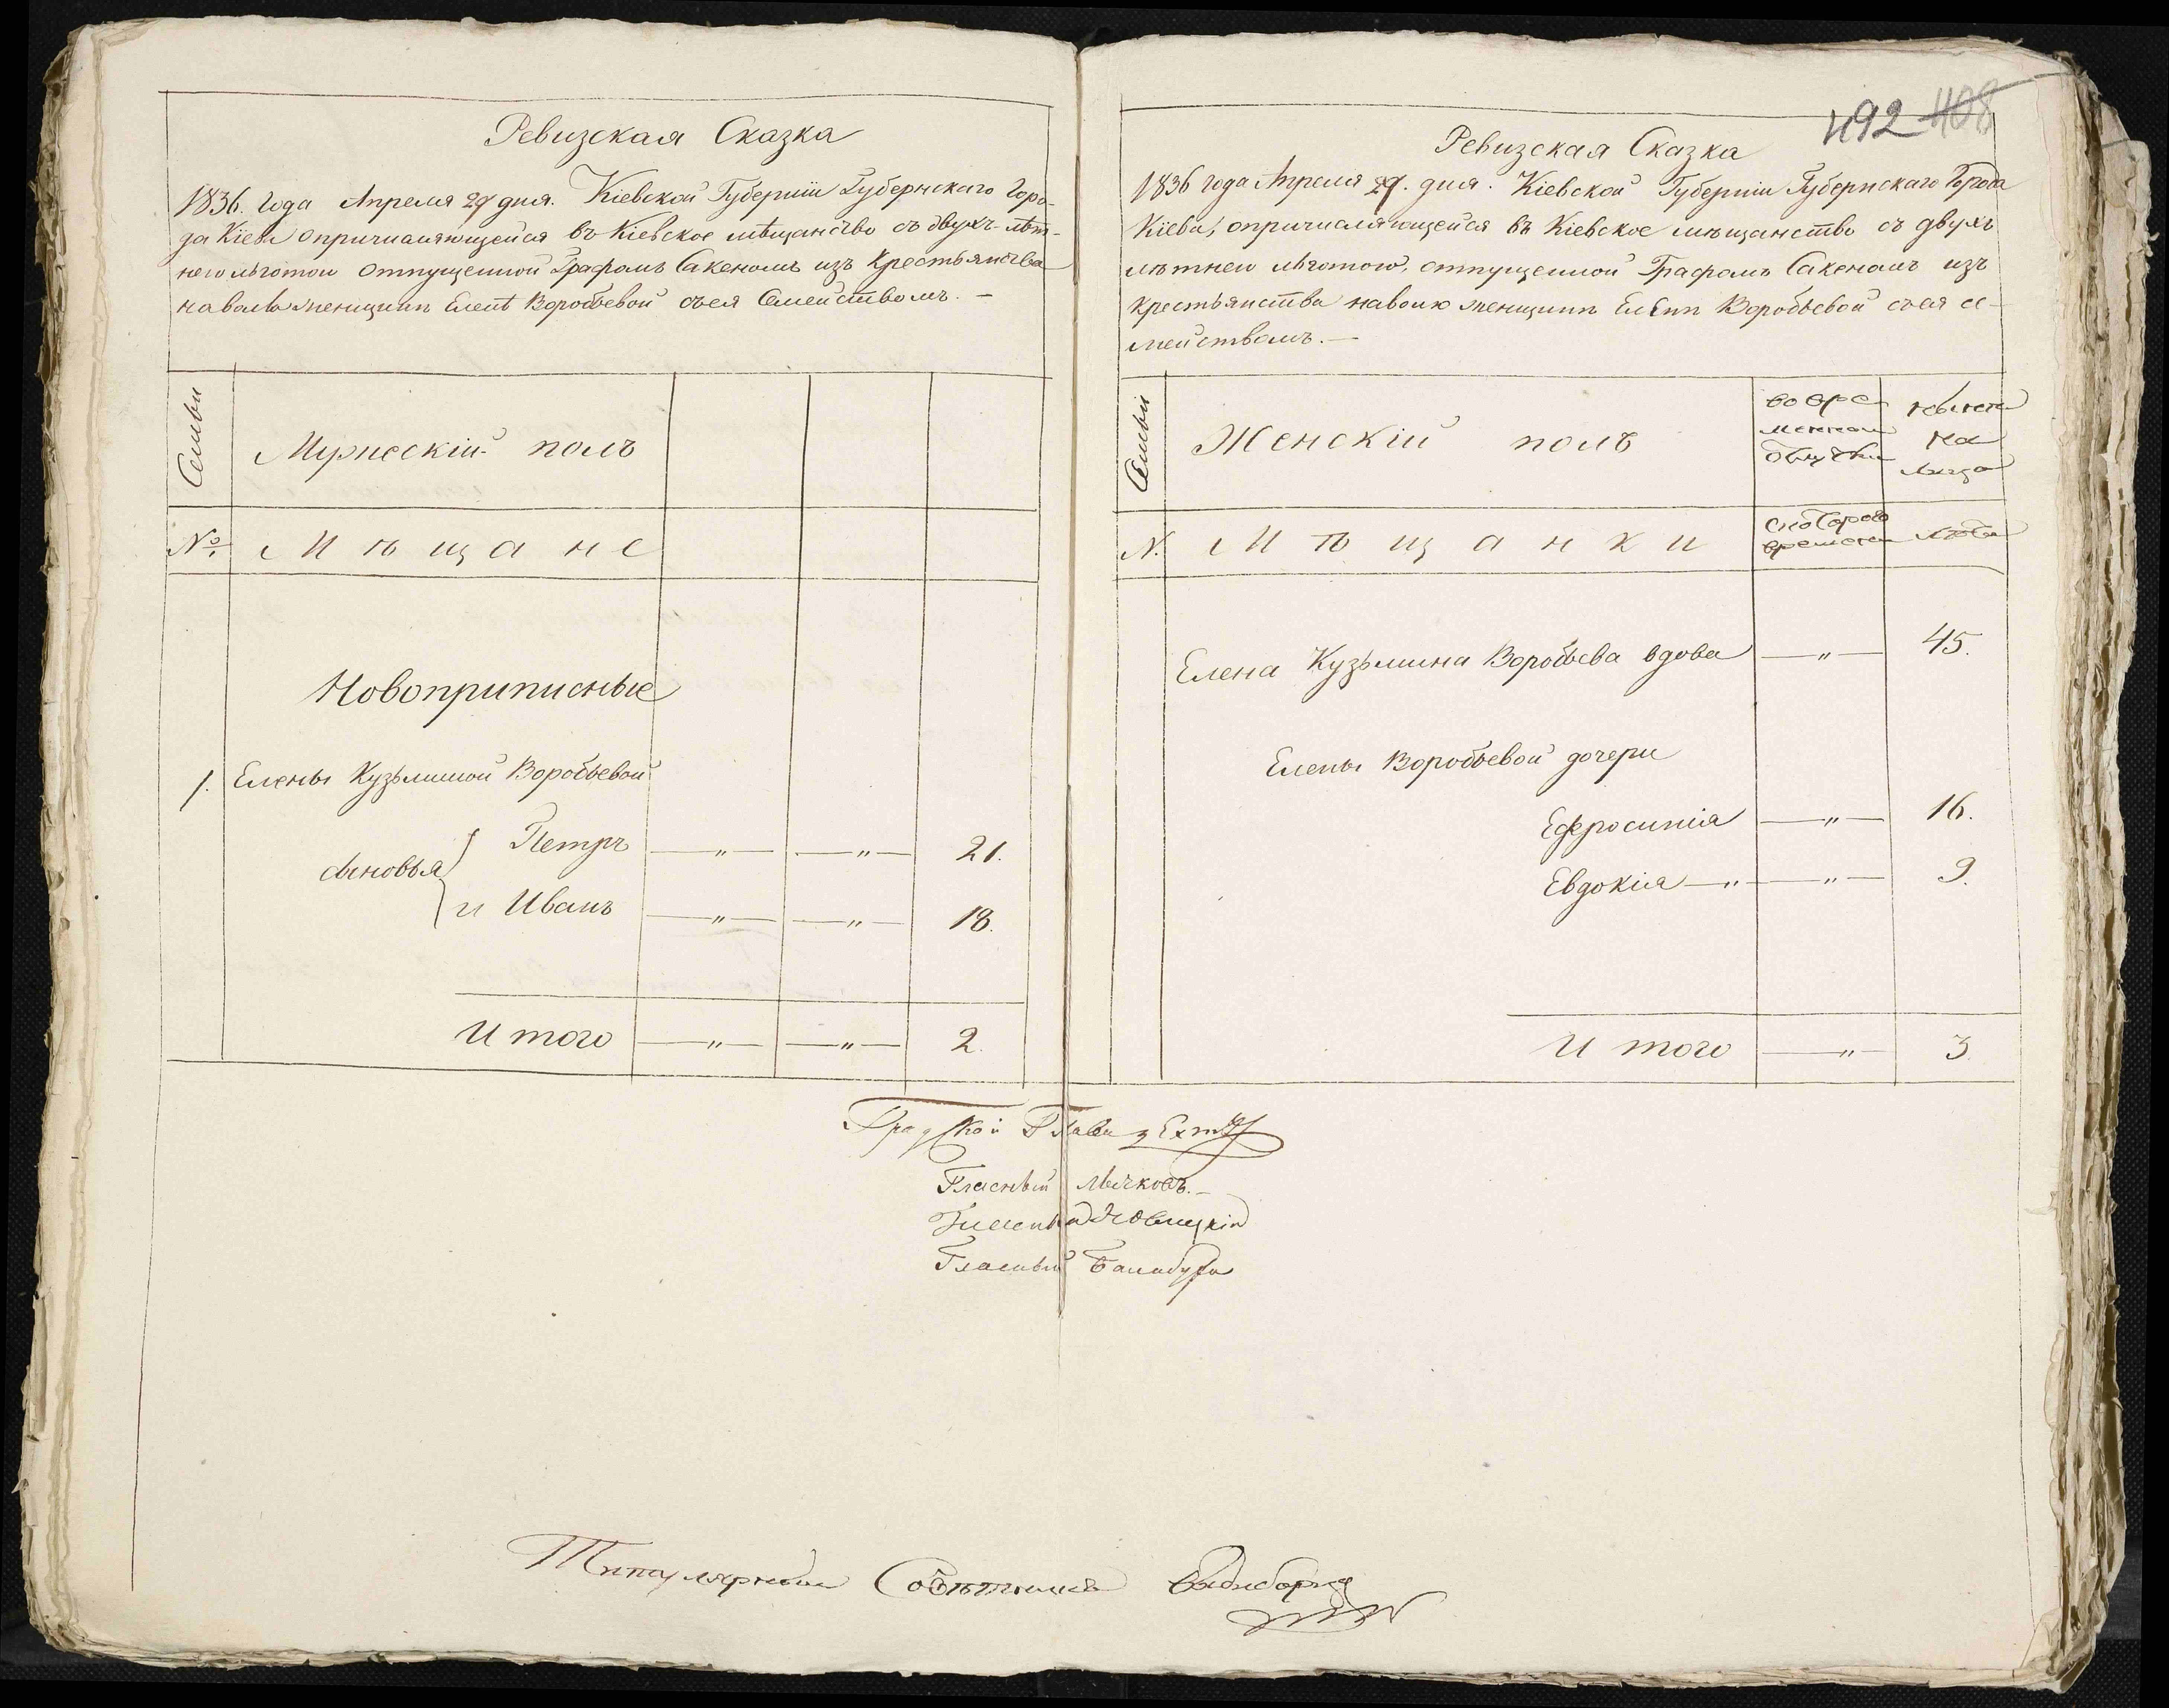 Ревизская Сказка
1836. Года Апреля 29 дня. Кіевской Губерніи Губернскаго Горо-
да Кіева опричисляющейся въ Кіевское мѣщанство съ двухъ лѣт-
нею льготою отпущенной Графомъ Сакеномъ изъ Крестьянства
на волю женщинѣ Еленѣ Воробьевой съ ея Семействомъ. —
Семьи
Мужескій полъ
№. Мѣщане
Новоприписные
1. Елены Кузьминой Воробьевой
сыновья
Петръ — " — — " — 21.
и Иванъ — " — — " — 18.
Итого — " — — " — 2.
492 408
Ревизская Сказка
1836 года Апреля 29. дня. Кіевской Губерніи Губернскаго Города
Кіева, опричисляющейся въ Кіевское мѣщанство съ двухъ
лѣтнею льготою, отпущенной Графомъ Сакеномъ изъ
крестьянства на волю женщинѣ Еленѣ Воробьевой съ ея се-
мействомъ. —
Семьи
Женскій полъ
во вре
менной
отлучкѣ
нынѣ
на
лицо
N. Мѣщанки
съ котораго
времени
лѣта
Елена Кузьмина Воробьева вдова — " — 45.
Елены Воробьевой дочери
Ефросинія — " — 16.
Евдокія — " — — " — 9.
Итого — " — 3.
Градской Глава
Гласный Лычковъ. —
Гласный
Гласный Балабуха
Титулярный Совѣтникъ